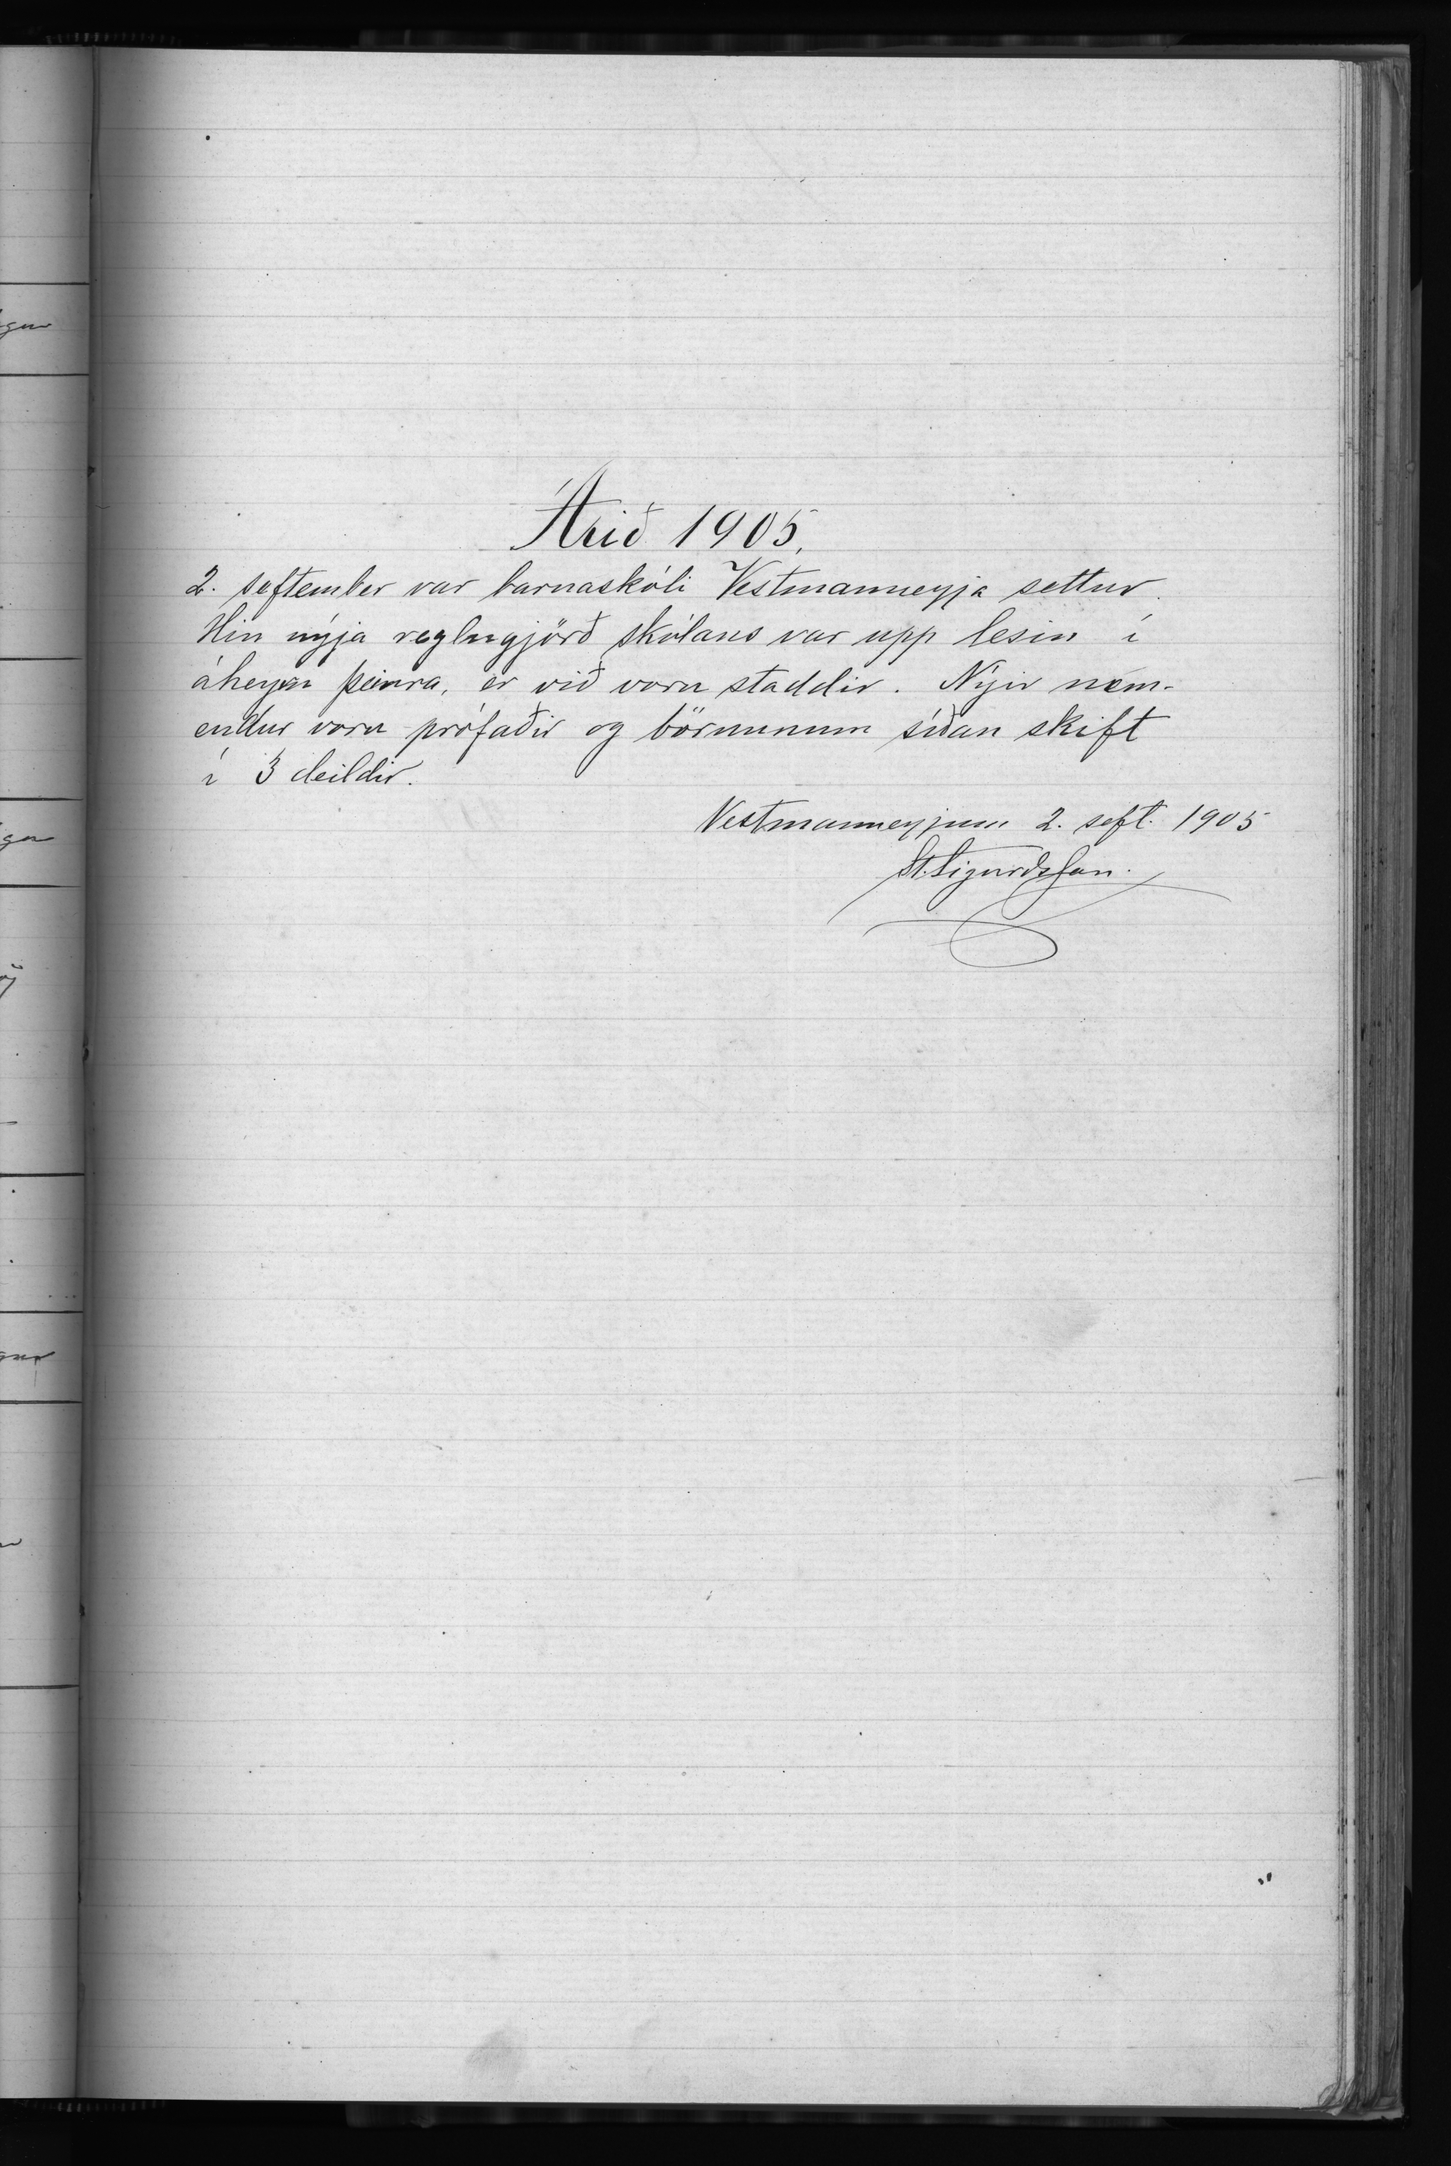 Árið 1905.
2. september var barnaskóli Vestmanneyja settur.
Hin nýja reglugjörð skólans var upp lesin í
áheyrn þeirra, er við voru staddir. Nýir nem-
endur voru prófaðir og börnunum síðan skift
í 3 deildir.
Vestmanneyjum 2. sept. 1905
St. Sigurðsson.